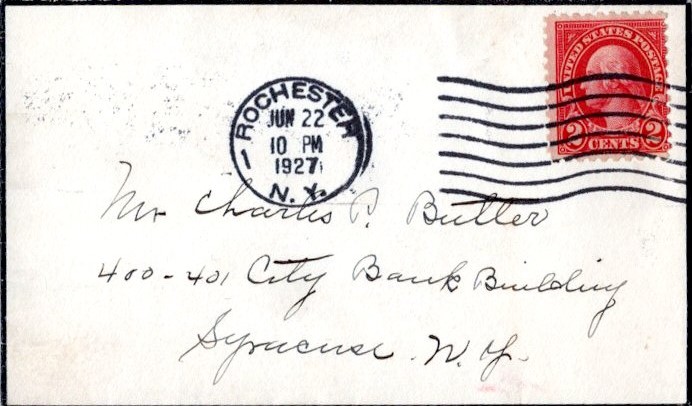 UNITED STATES POSTAGE
2 CENTS 2
ROCHESTER
JUN 22
10 PM
1927
N. Y.
Mr Charles P. Butler
400-401 City Bank Building
Syracuse N. Y.